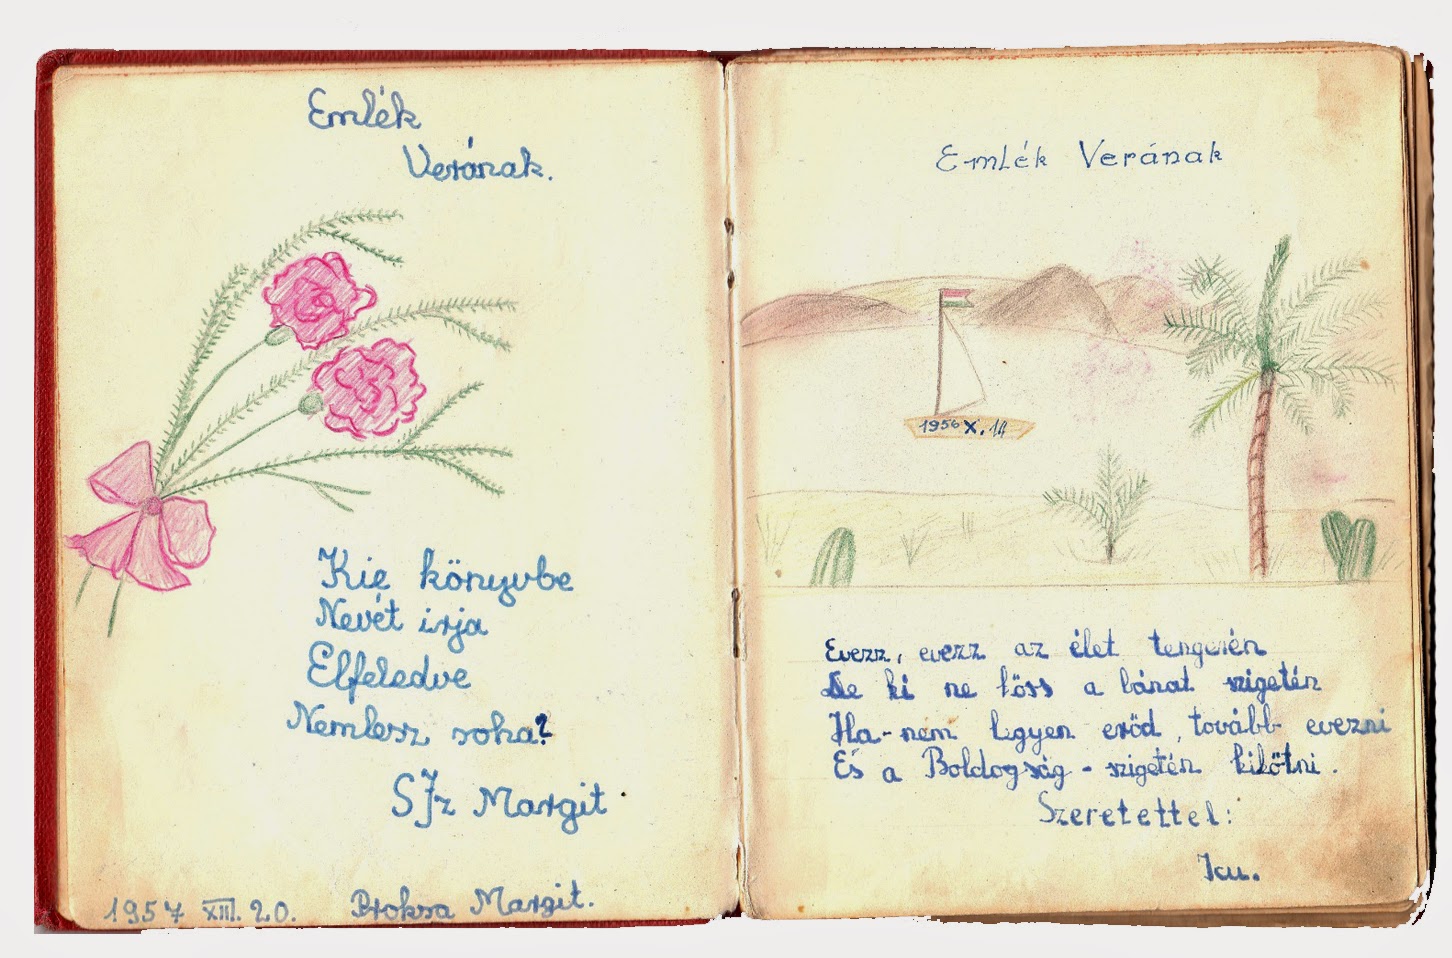 Emlék
Verának.
Kie könyvbe
Nevét irja
Elfeledve
Nemlesz soha?
Margit
1957 XIII. 20. Proksa Margit.
Emlék Verának
1956 X. 14
Evezz, evezz az élet tengerén
De ki ne köss a bánat szigetén
Ha-nem legyen erőd, tovább evezni
És a Boldogság-szigetén kikötni.
Szeretettel:
Icu.